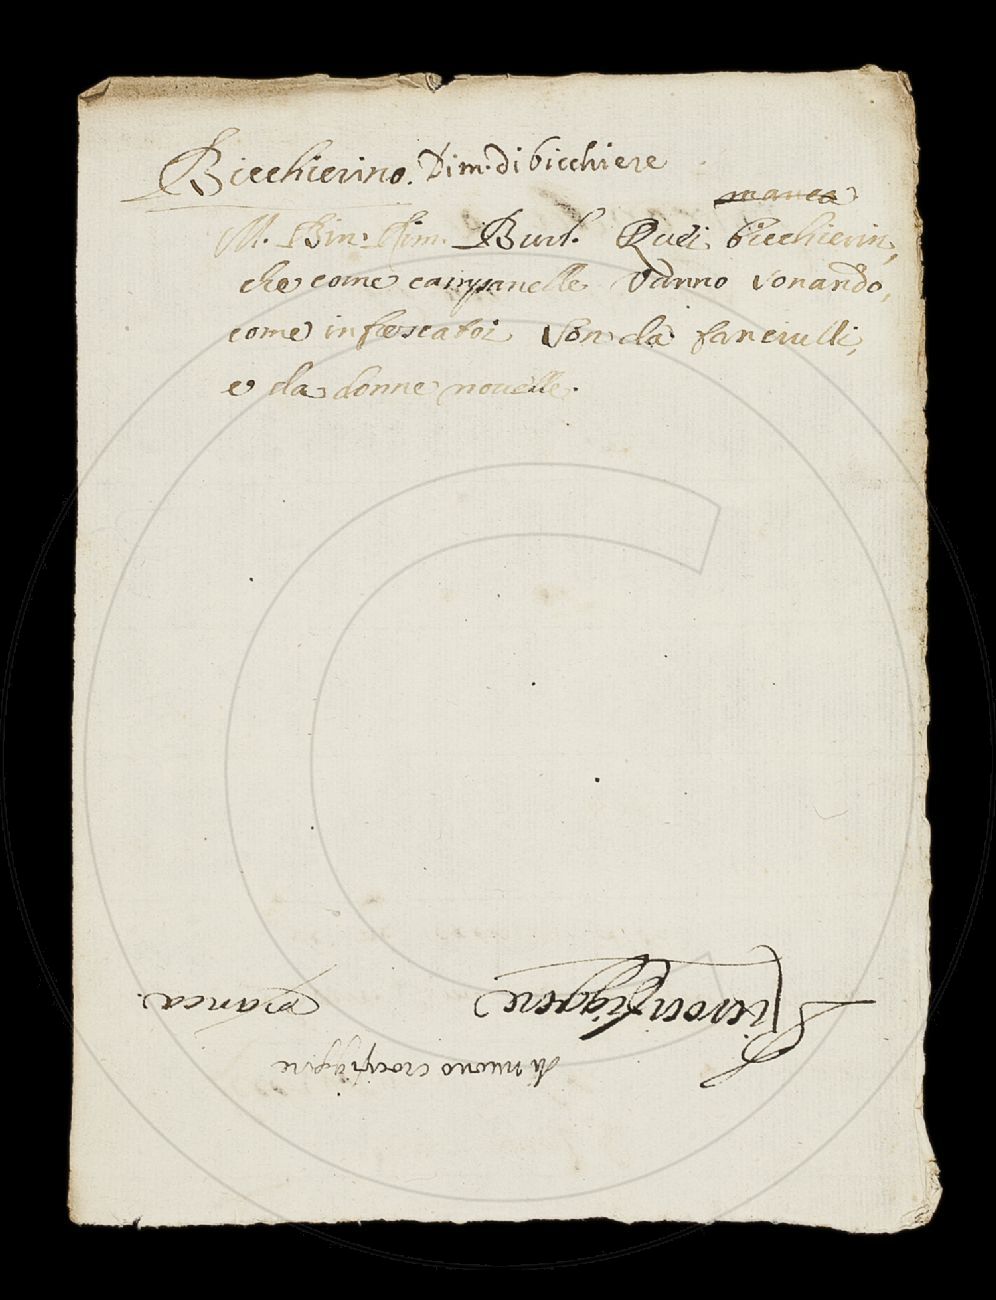 Bicchierino. Dim. di bicchiere
manca
M. Bin. Rim. Burl. Quei bicchierin,
che come campanelle vanno sonando,
come infrescatoi son da fanciulli,
e da donne novelle.
Ricrocifiggere manca.
di nuovo crocifiggere